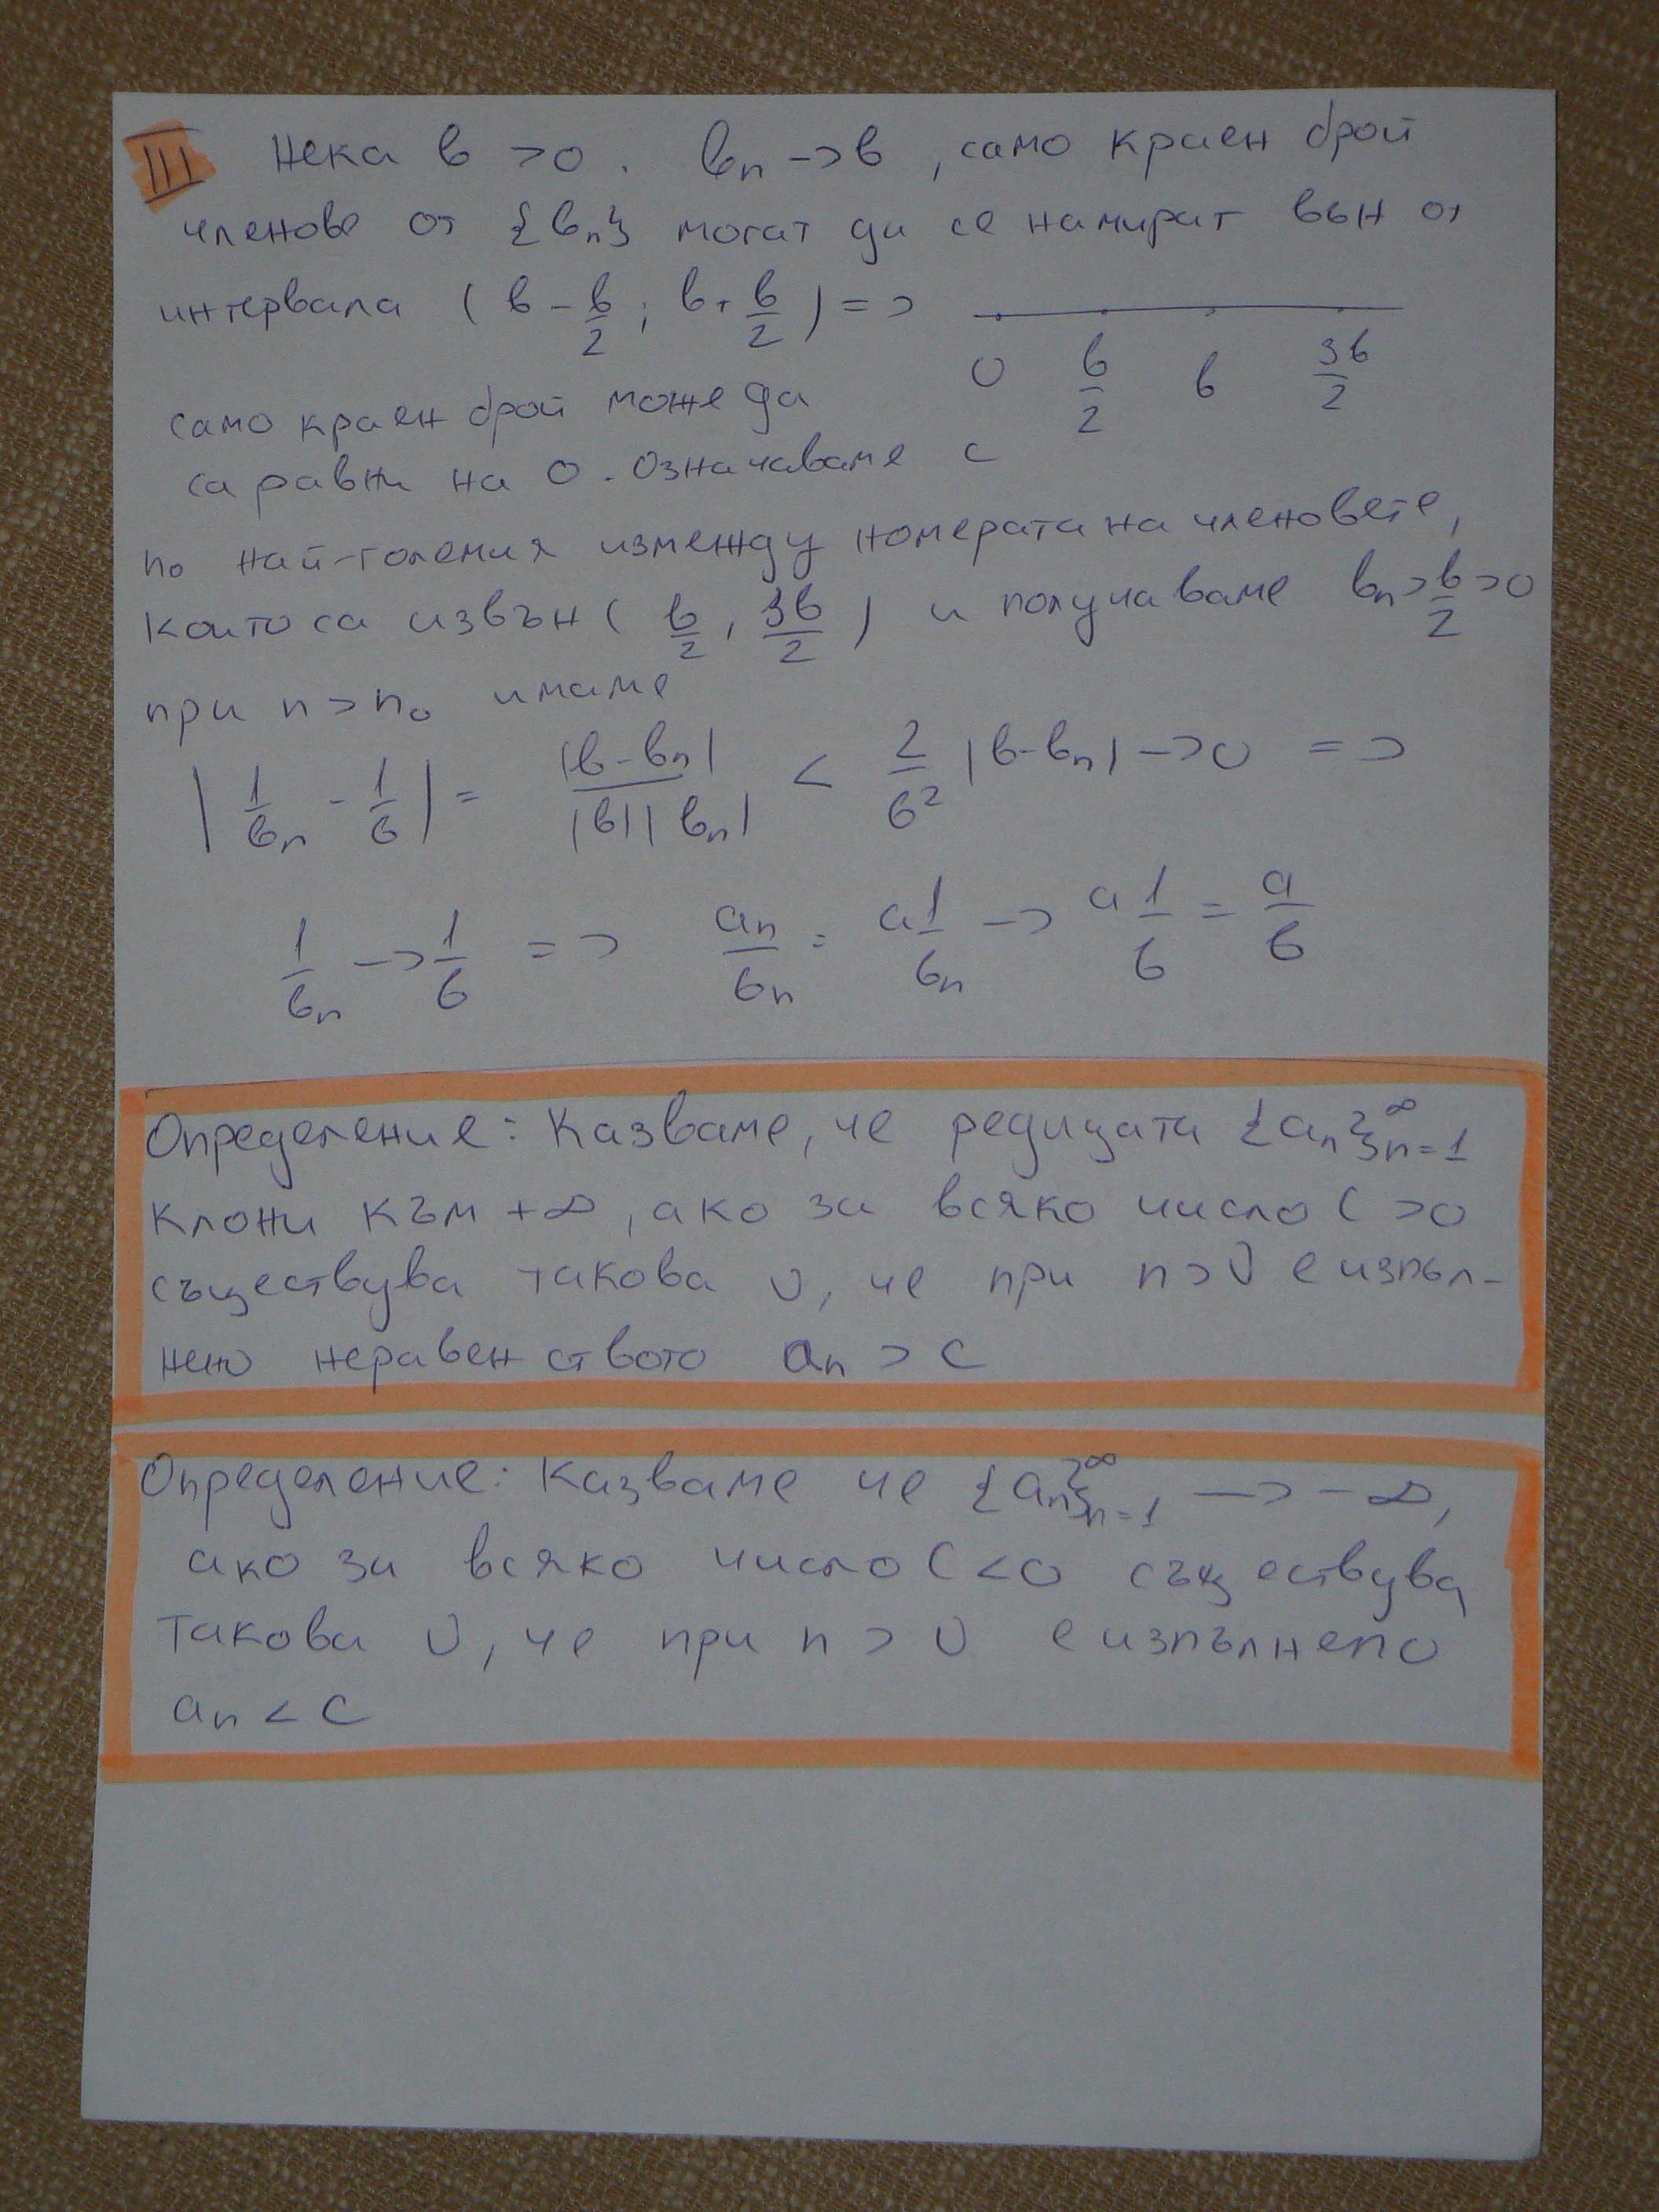 III Нека b > 0. bₙ -> b, само краен брой
членове от {bₙ} могат да се намират вън от
интервала (b - b/2; b + b/2) =>
0 b/2 b 3b/2
само краен брой може да
са равни на 0. Означаваме с
n₀ най-големия измежду номерата на членовете,
които са извън (b/2, 3b/2) и получаваме bₙ > b/2 > 0
при n > n₀ имаме
|1/bₙ - 1/b| = |b - bₙ|/|b||bₙ| < 2/b² |b - bₙ| -> 0 =>
1/bₙ -> 1/b => aₙ/bₙ = a 1/bₙ -> a 1/b = a/b
Определение: Казваме, че редицата {aₙ}ₙ₌₁^∞
клони към +∞, ако за всяко число C > 0
съществува такова ν, че при n > ν е изпъл-
нено неравенството aₙ > C
Определение: Казваме че {aₙ}ₙ₌₁^∞ -> -∞,
ако за всяко число C < 0 съществува
такова ν, че при n > ν е изпълнено
aₙ < C